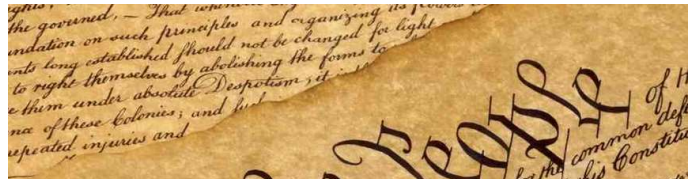 the governed, — That whenever
undation on such principles and organizing its powers
nts long established should not be changed for light
to right themselves by abolishing the forms to
e them under absolute Despotism; it is the
na of these Colonies; and such
repeated injuries and
People
of
for the common def
his Constitu